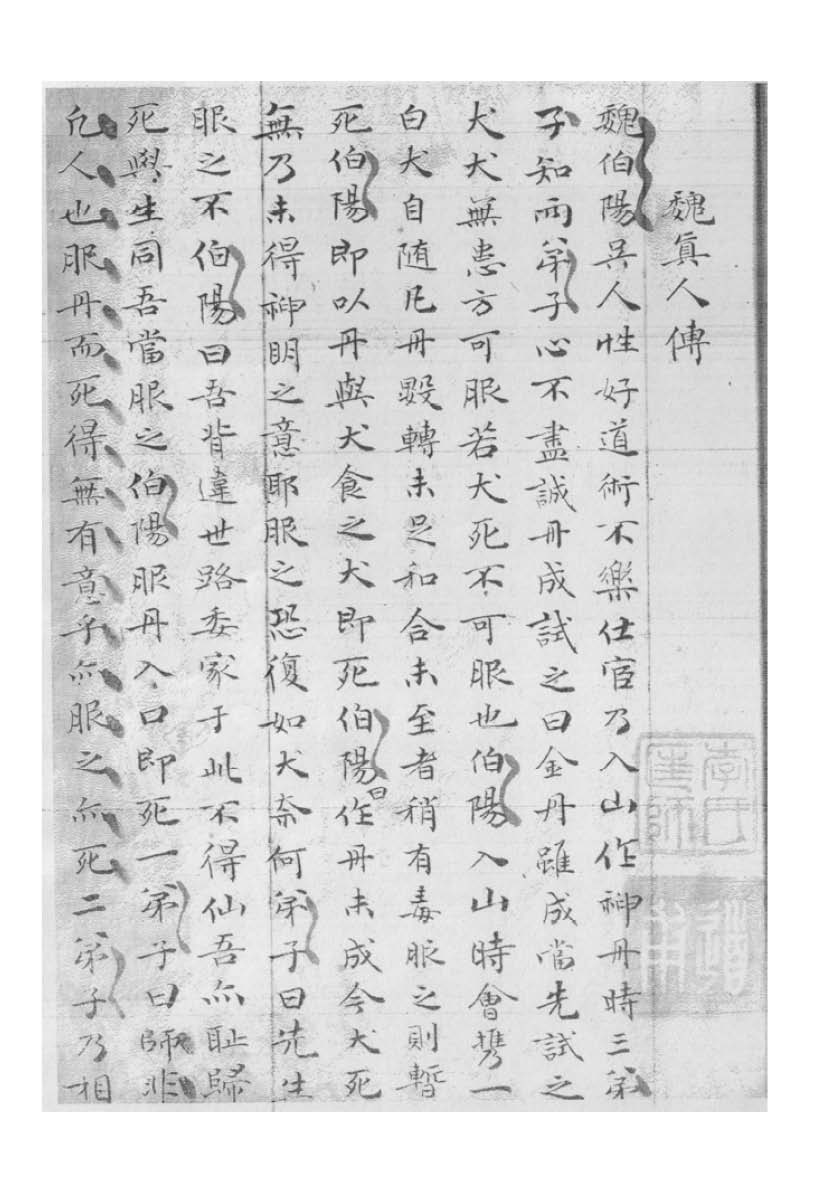 魏眞人傳
魏伯陽吳人性好道術不樂仕官乃入山作神丹時三弟
子知兩弟子心不盡誠丹成試之曰金丹雖成當先試之
犬犬無患方可服若犬死不可服也伯陽入山時會携一
白犬自随凡丹毀轉未足和合未至者稍有毒服之則暫
死伯陽即以丹與犬食之犬即死伯陽曰作丹未成今犬死
無乃未得神明之意耶服之恐復如犬奈何弟子曰先生
服之不伯陽曰吾背違世路委家于此不得仙吾亦耻歸
死與生同吾當服之伯陽服丹入口即死一弟子曰師非
凡人也服丹而死得無有意乎亦服之亦死二弟子乃相